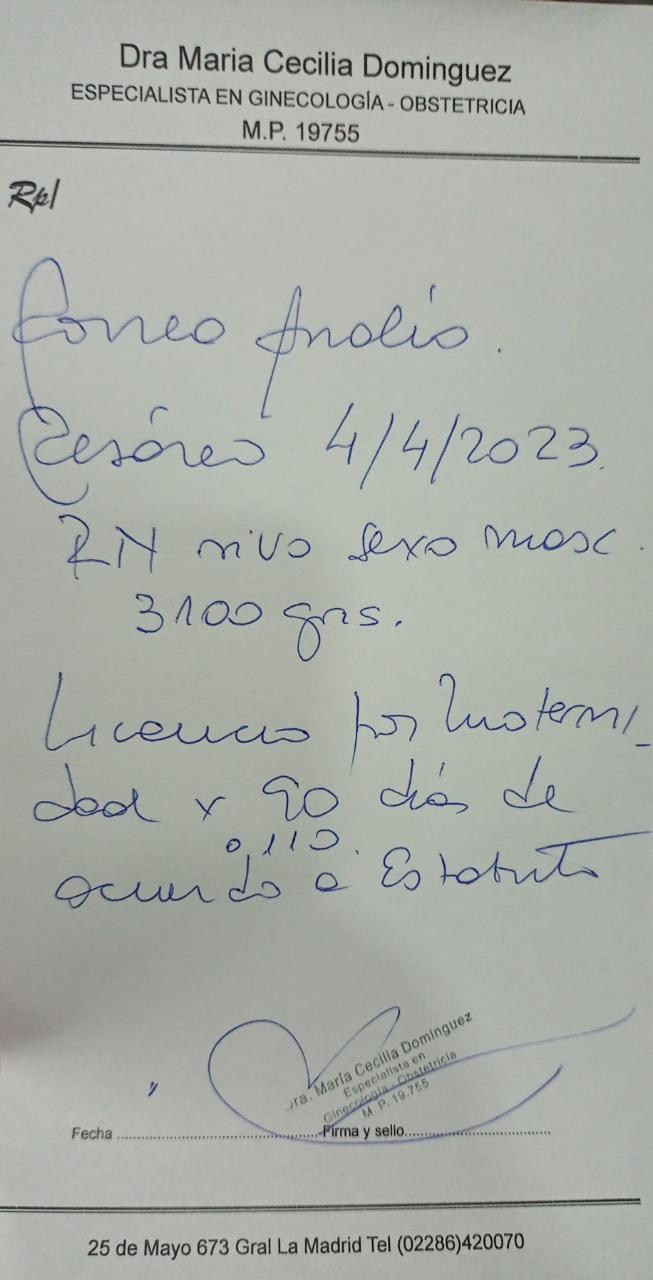 Dra Maria Cecilia Dominguez
ESPECIALISTA EN GINECOLOGÍA - OBSTETRICIA
M.P. 19755
Rp/
Cesárea 4/4/2023.
RN vivo sexo masc.
3100 grs.
Licencia por Materni_
dad x 90 días de
o 110.
acuerdo a Estatuto
Dra. María Cecilia Dominguez
Especialista en
Ginecología - Obstetricia
M. P. 19.755
Fecha
Firma y sello
25 de Mayo 673 Gral La Madrid Tel (02286)420070